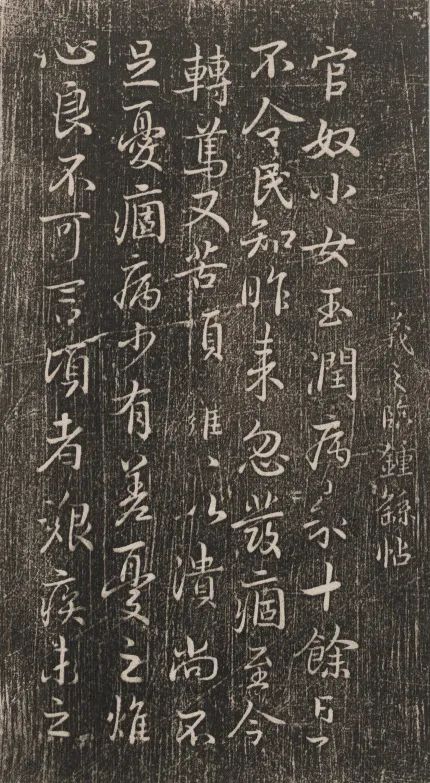 羲之臨鍾繇帖
官奴小女玉潤病來十餘日
不令民知昨来忽發痼至今
轉篤又苦頭癰〻以潰尚不
足憂痼病少有差憂之燋
心良不可言頃者艱疾未之